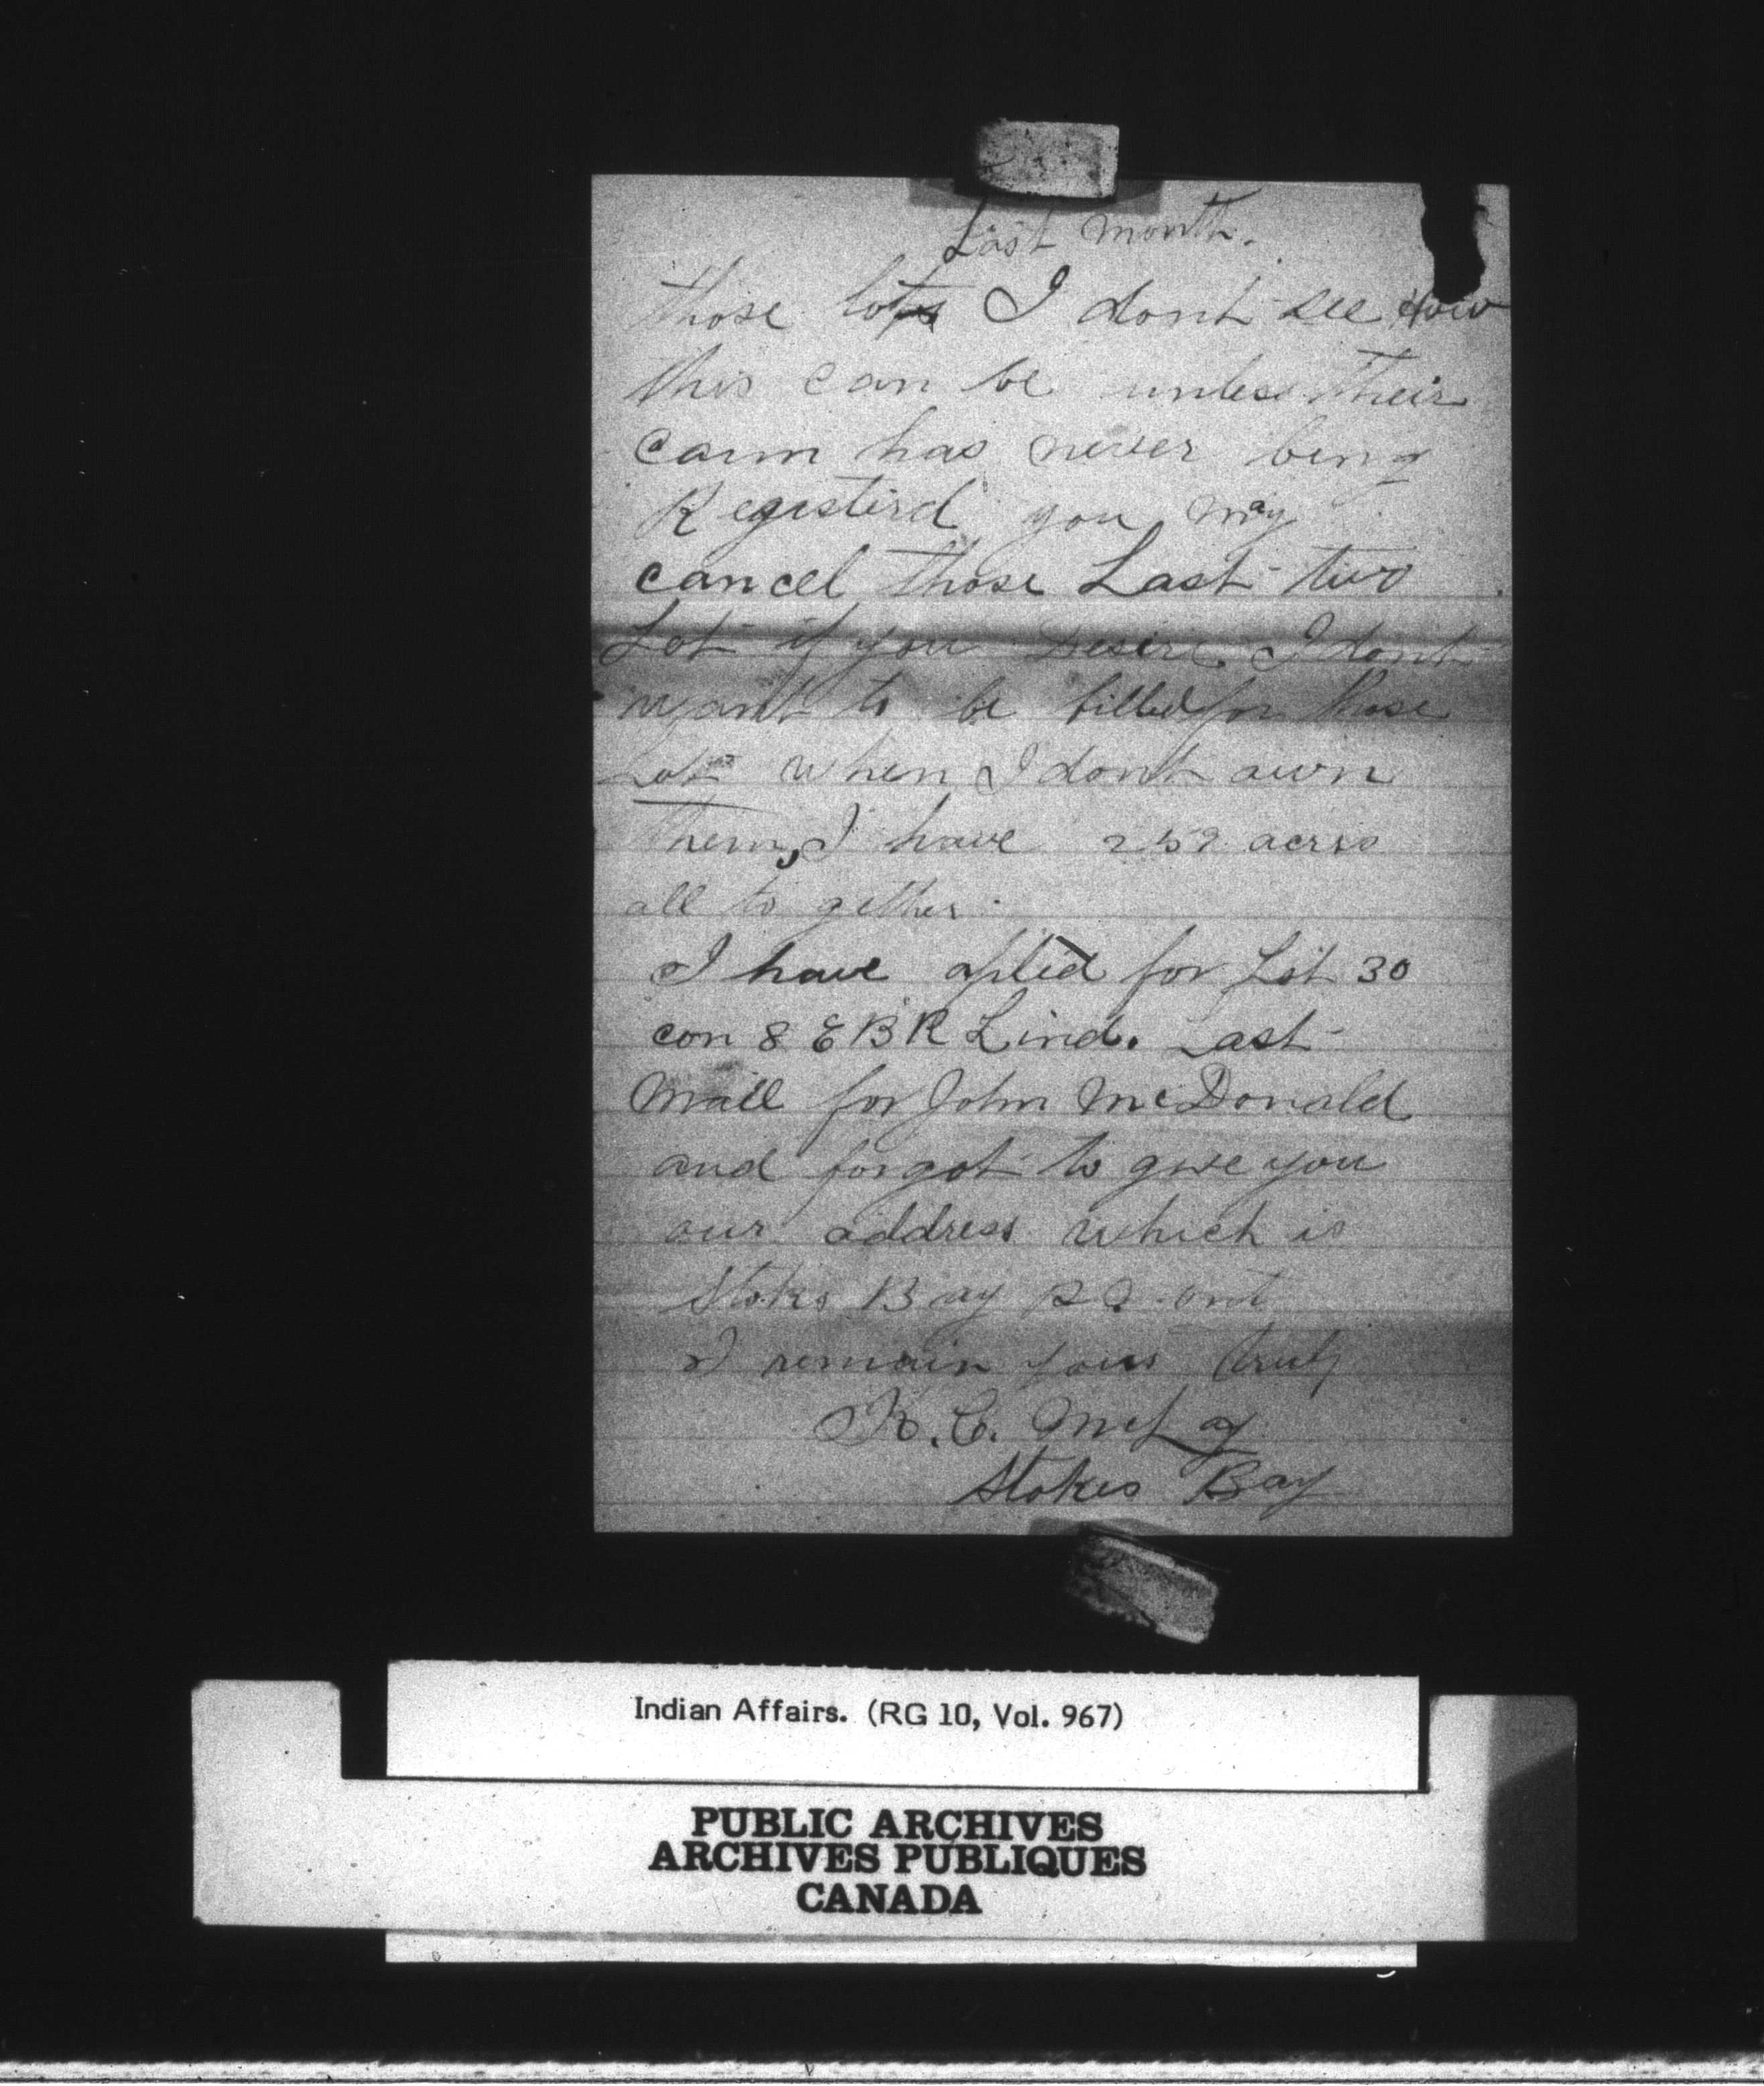 Last month.
those lots I dont see How
this can be unless their
caim has never being
Registird you may
cancel those Last two
Lot if you Desire. I dont
want to be billed for those
Lot when I dont own
Them, I have 252 acres
all to gether.
I have aplied for Lot 30
con 8 E B R Lind. Last
mail for John McDonald
and forgot to give you
our address which is
Stokes Bay P O. ont
I remain yours truly
K. C. McLay
Stokes Bay
Indian Affairs. (RG 10, Vol. 967)
PUBLIC ARCHIVES
ARCHIVES PUBLIQUES
CANADA